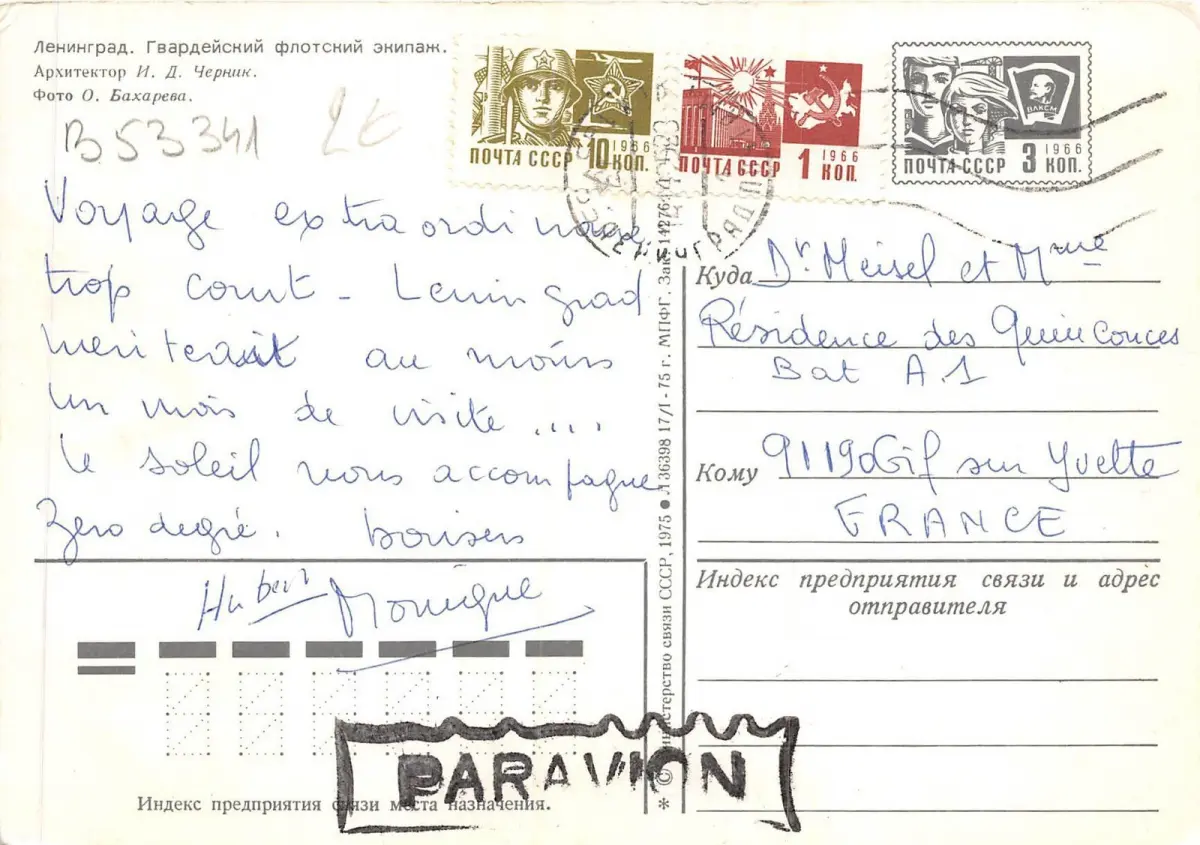 Ленинград. Гвардейский флотский экипаж.
Архитектор И. Д. Черник.
Фото О. Бахарева.
B 53341
2€
ПОЧТА СССР 10 КОП. 1966
ПОЧТА СССР 1 КОП. 1966
ВЛКСМ
ПОЧТА СССР 3 КОП. 1966
Voyage extraordinaire
trop court - Leningrad
meriterait au moins
un mois de visite ....
Le soleil nous accompagne
Zero degré. baisers
Hubert Monique
© Министерство связи СССР, 1975 ● Л 36398 17/I-75 г. МПФГ. Зак. 14276
Куда Dr Meisel et Mme
Résidence des Quinconces
Bat A.1
Кому 91190 Gif sur Yvette
FRANCE
Индекс предприятия связи и адрес
отправителя
PAR AVION
Индекс предприятия связи места назначения.
*